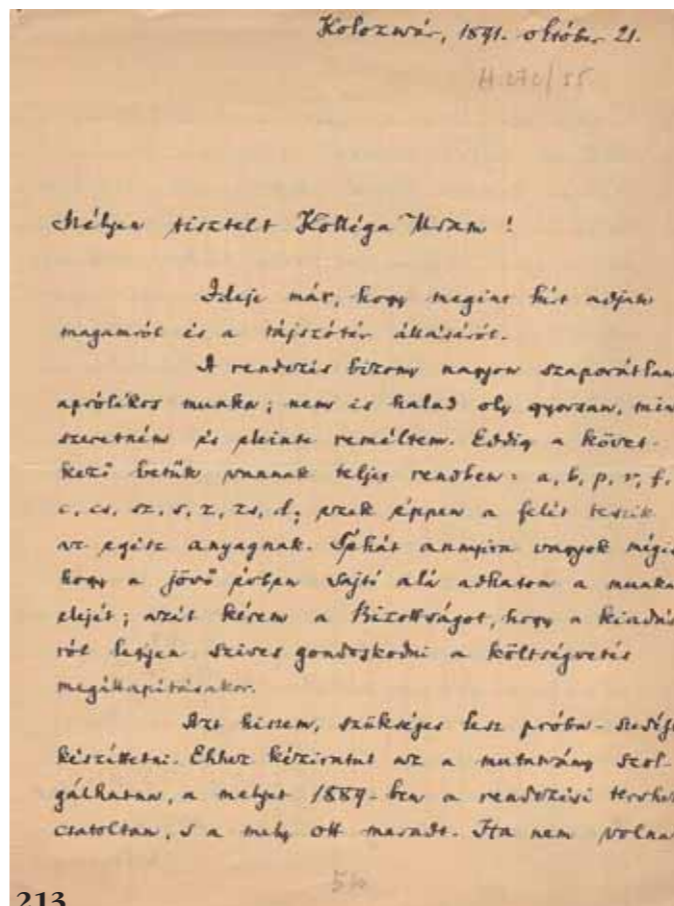 Kolozsvár, 1891. október 21.
Mélyen tisztelt Kolléga Uram !
Ideje már, hogy megint hírt adjak
magamról és a tájszótár állásáról.
A rendezés bizony nagyon szaporátlan
aprólékos munka; nem is halad oly gyorsan, min
szeretném és eleinte reméltem. Eddig a követ-
kező betűk vannak teljes rendben: a, b, p, v, f,
c, cs, sz, s, z, zs, d; ezek éppen a felét teszik
az egész anyagnak. Tehát annyira vagyok mégis
hogy a jövő évben sajtó alá adhatom a munka
elejét; azért kérem a Bizottságot, hogy a kiadás
ról legyen szíves gondoskodni a költségvetés
megállapításakor.
Azt hiszem, szükséges lesz próba-szedés
készíttetni. Ehhez kéziratul az a mutatvány szol-
gálhatna, a melyet 1889-ben a rendezési tervhez
csatoltam, s a mely ott maradt. Ha nem volna
213